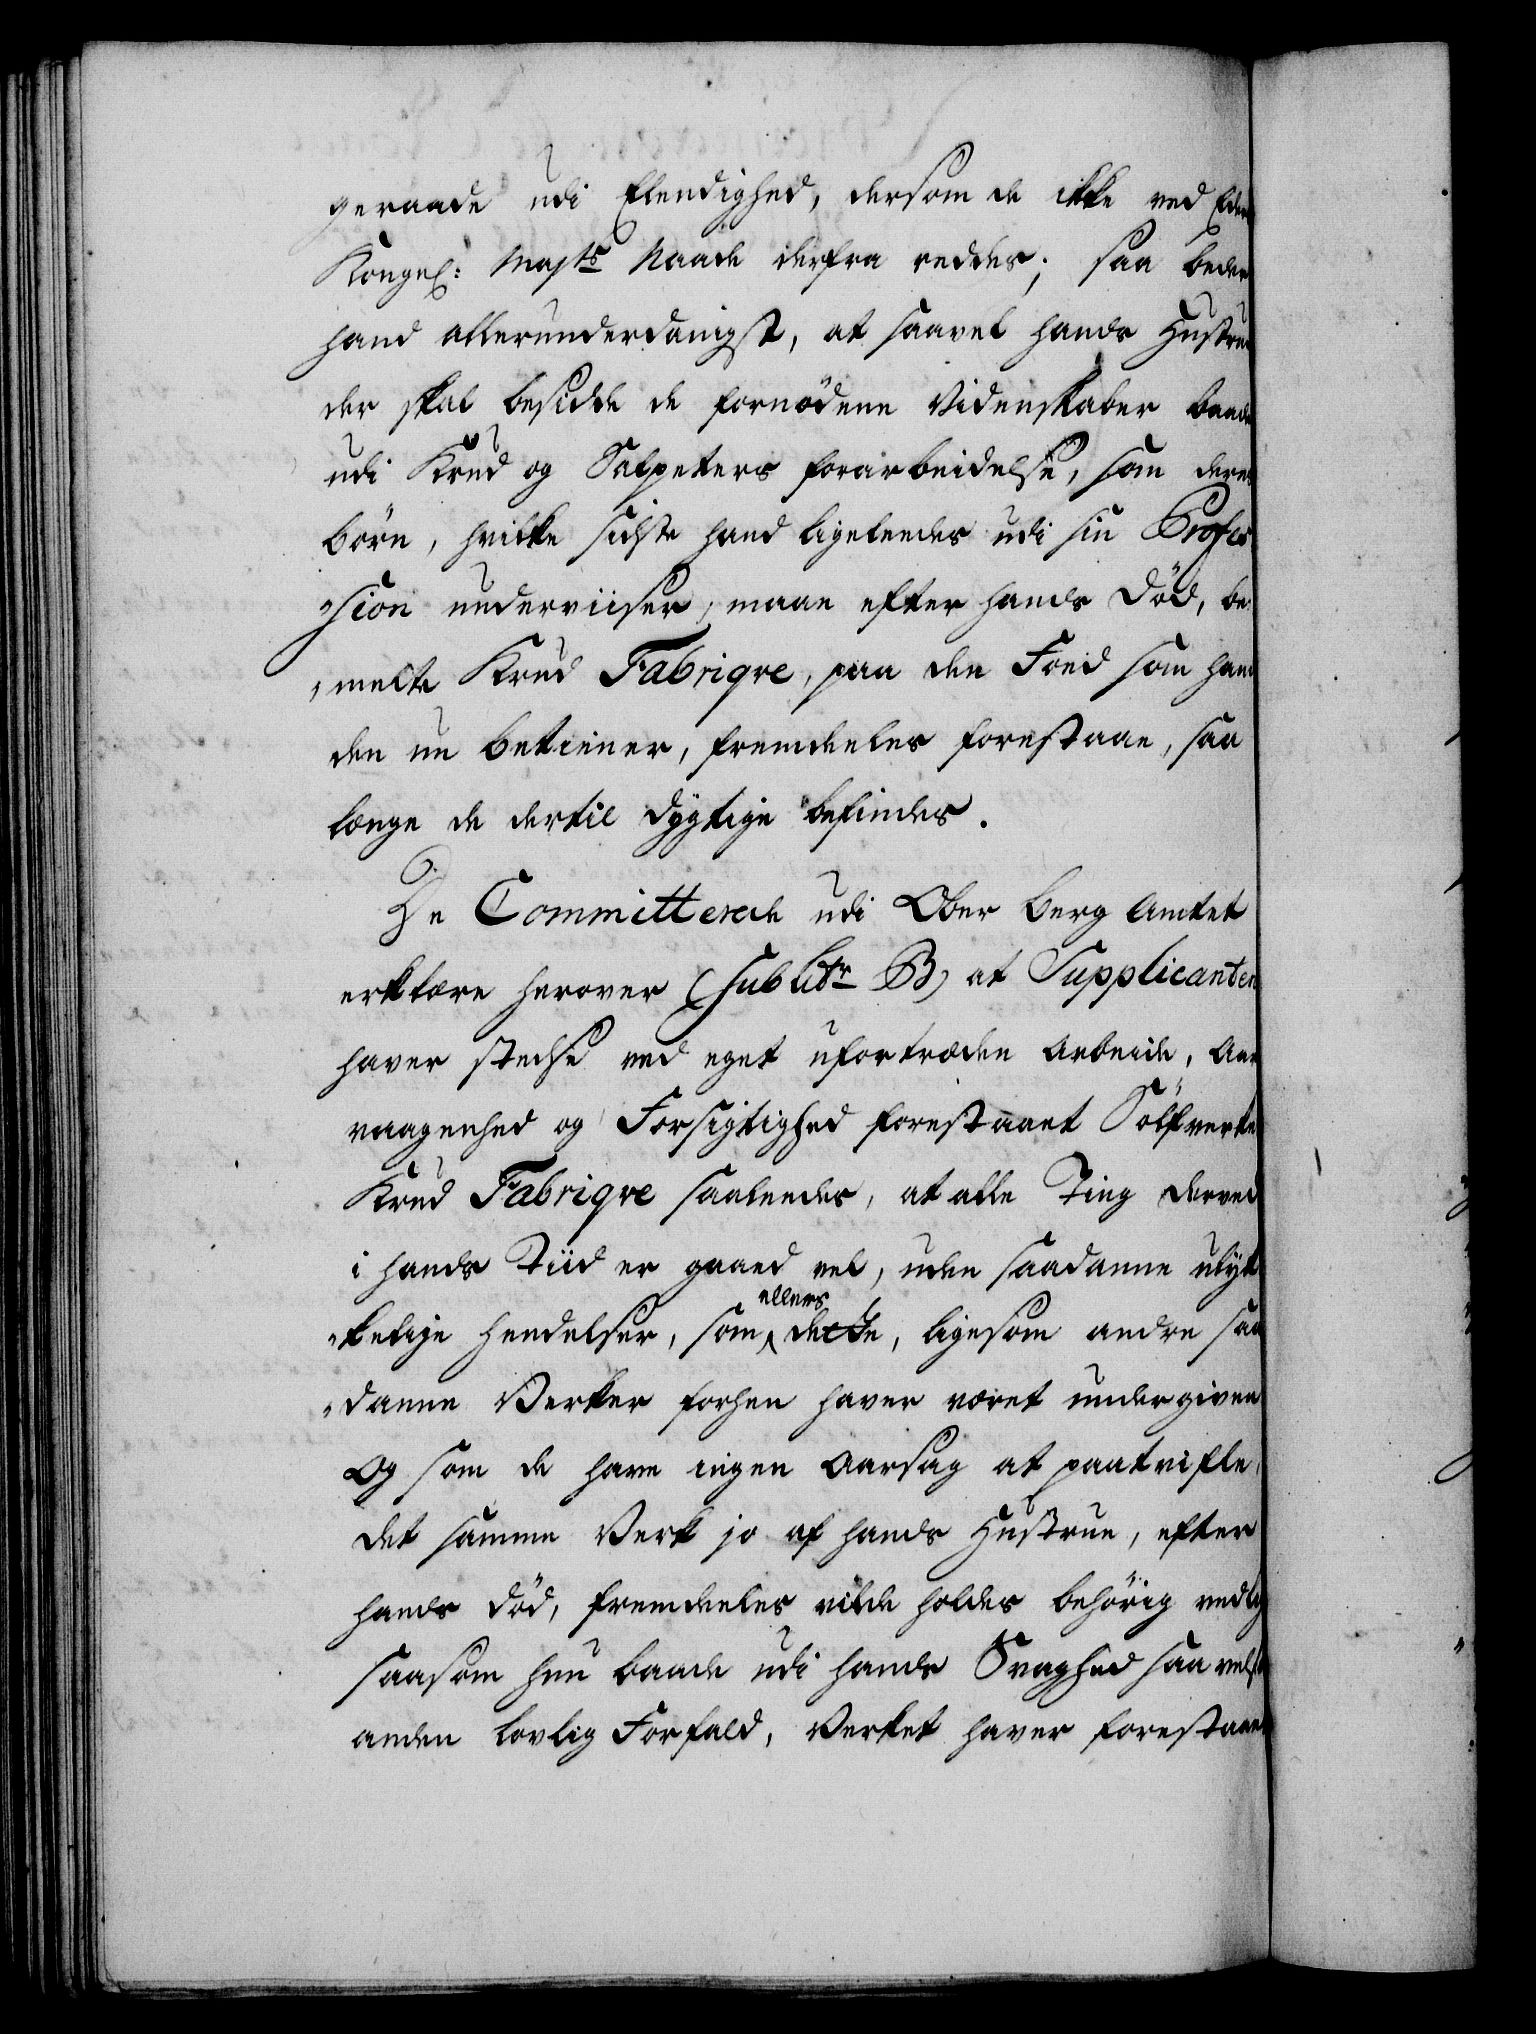 geraade udi Elendighed, dersom de ikke ved Eders
Kongel: Majts Naade derfra reddes; saa beder
hand allerunderdanigst, at saavel hands Hustrue
der skal besidde de fornødene Videnskaber baade
udi Krud og Salpeters forarbeidelse, som deres
børn, hvilke sidste hand ligeleedes udi sin Profes
„sion underviiser, maae efter hands Død, be
„melte Krud Fabriqve, paa den Foed som hand
den nu betiener, fremdeeles forestaae, saa
længe de dertil dygtige befindes.
De Committerede udi Ober Berg Amtet
erklære herover (sub Litr B) at Supplicanten
haver stedse ved eget ufortrøden Arbeide, Aar
vaagenhed og Forsigtighed forestaaet Sölfverks
Krud Fabriqve saaleedes, at alle Ting derved
i hands Tiid er gaaed vel, uden saadanne ulyk
„kelige Hendelser, som ellers dette, ligesom andre saa
„danne Verker forhen haver været undergiven
Og som de have ingen Aarsag at paatvifle,
det samme Verk jo af hands Hustrue, efter
hands Død, fremdeeles vilde holdes behörig vedlig
saasom hun baade udi hands Svaghed saavelsom
anden lovlig Forfald, Verket haver forestaaet